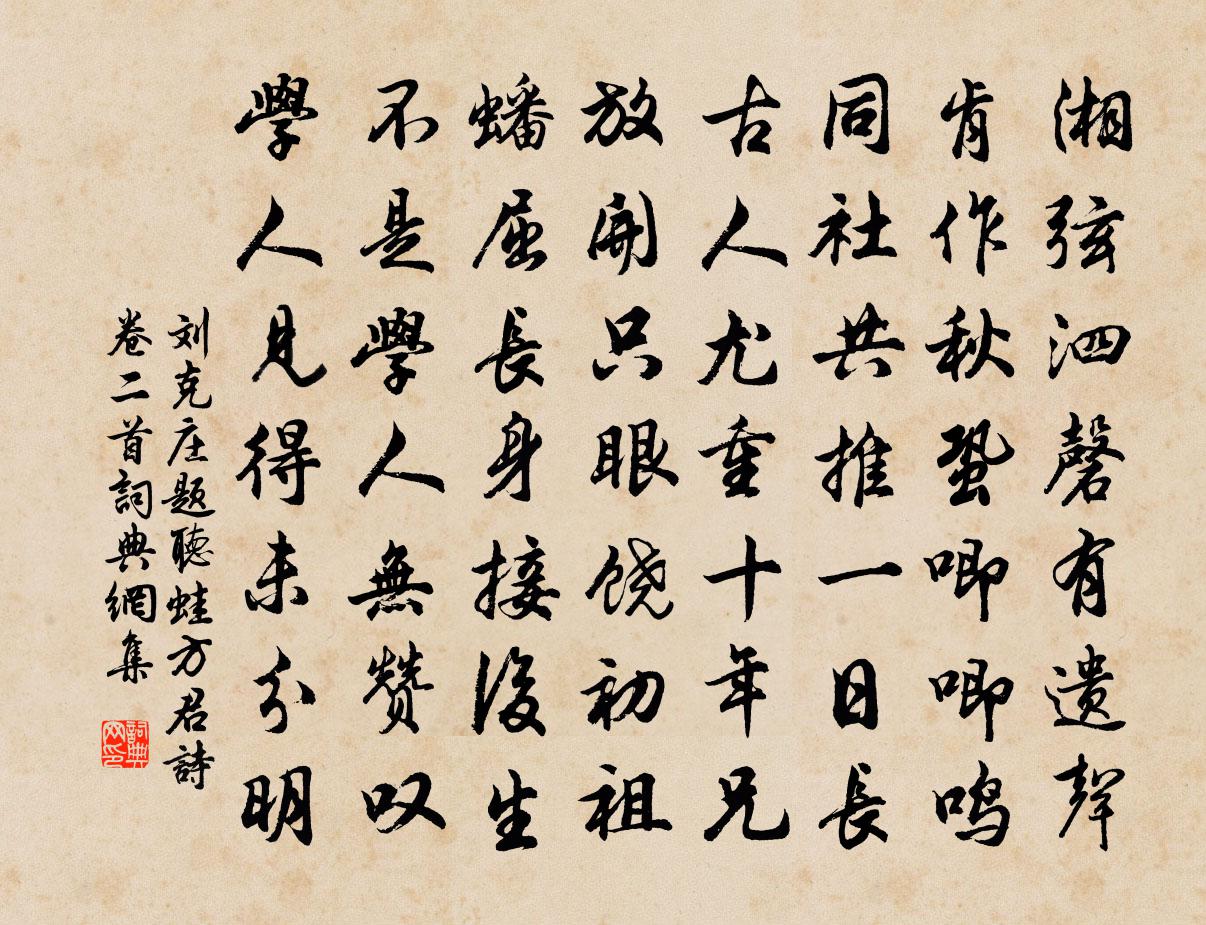 湘弦泗磬有遗聲
肯作秋蛩唧唧鸣
同社共推一日長
古人尤重十年兄
放開只眼饶初祖
蟠屈長身接後生
不是學人無赞叹
學人見得未分明
刘克庄题聽蛙方君詩
卷二首詞典網集
詞典網印